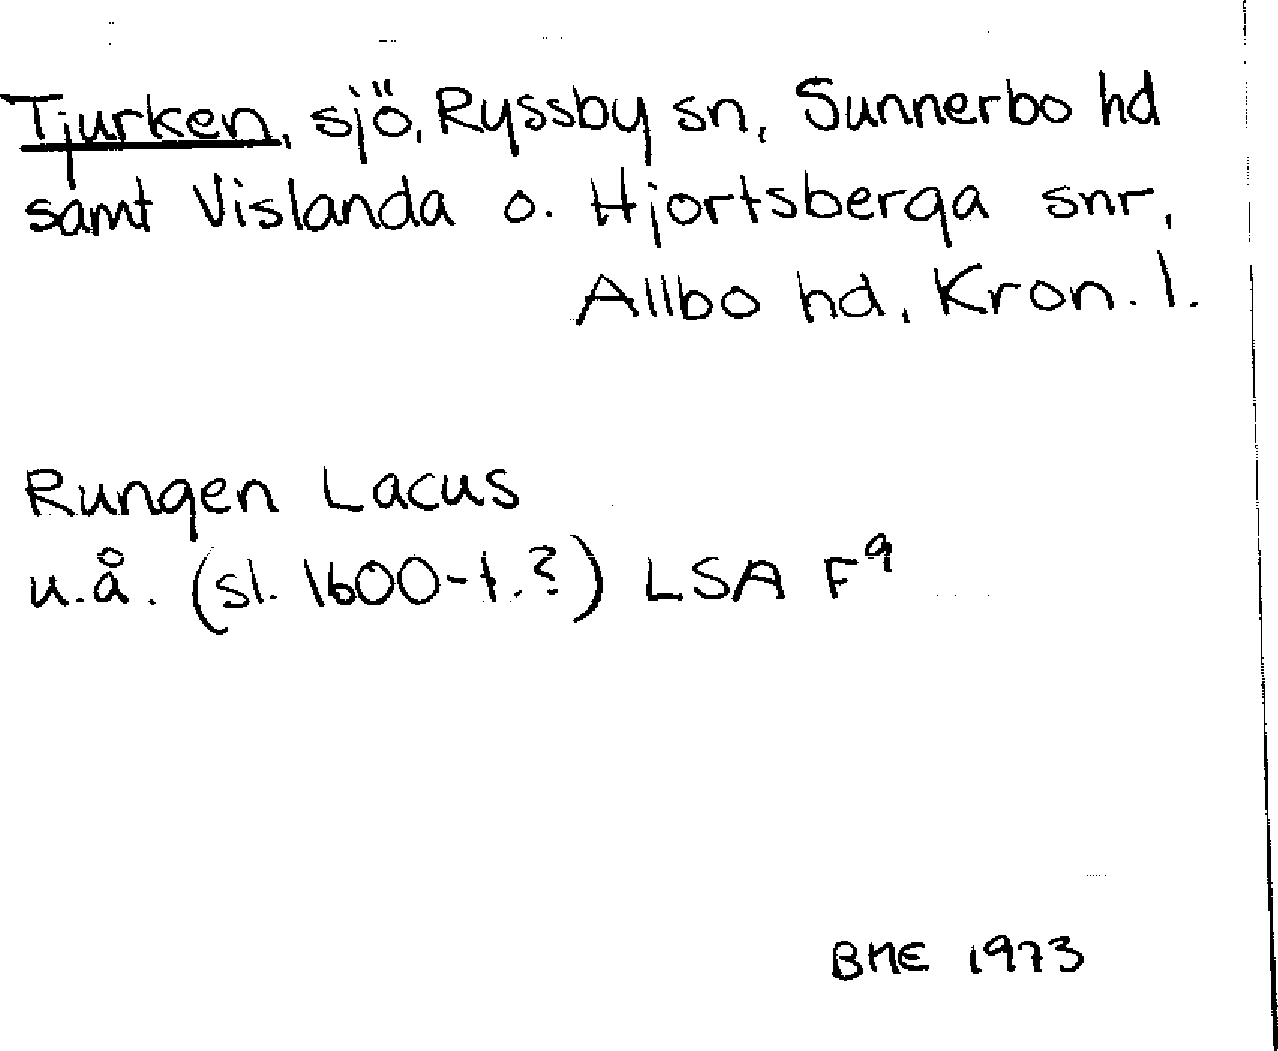 Tjurken, sjö, Ryssby sn, Sunnerbo hd
samt Vislanda o. Hjortsberga snr,
Allbo hd, Kron. l.
Rungen Lacus
u.å. (sl. 1600-t.?) LSA F⁹
BME 1973